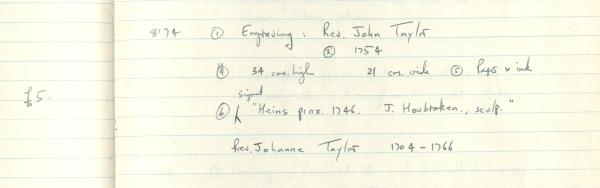 8'74 ① Engraving: Rev. John Taylor
③ 1754
④ 34 cms. high 21 cms. wide ⑤ Paper & ink
£5.
signed
⑥ "Heins pinx. 1746. J. Houbraken., sculp."
Rev. Johanne Taylor 1704 - 1766